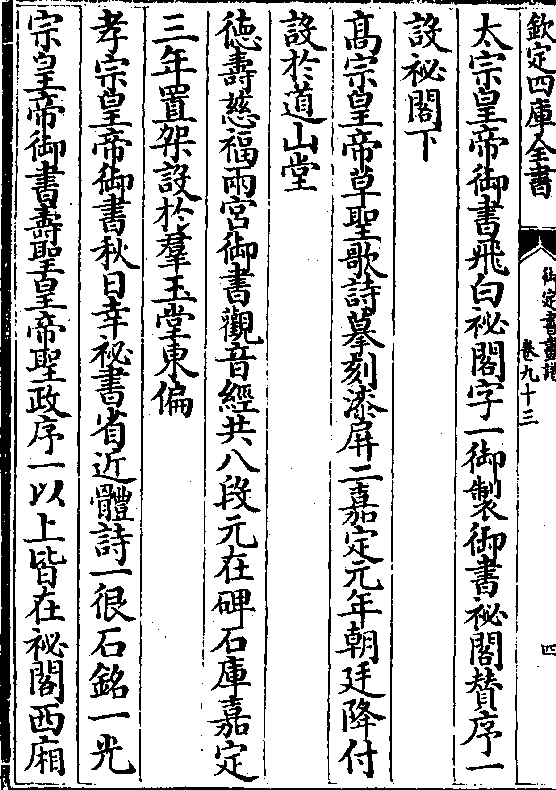 欽定四庫全書
御定書畫譜
卷九十三
四
太宗皇帝御書飛白祕閣字一御製御書祕閣賛序一
設祕閣下
髙宗皇帝草聖歌詩摹刻漆屏二嘉定元年朝廷降付
設於道山堂
德壽慈福兩宫御書觀音經共八段元在碑石庫嘉定
三年置架設於羣玉堂東偏
孝宗皇帝御書秋日幸祕書省近體詩一很石銘一光
宗皇帝御書壽聖皇帝聖政序一以上皆在祕閣西廂